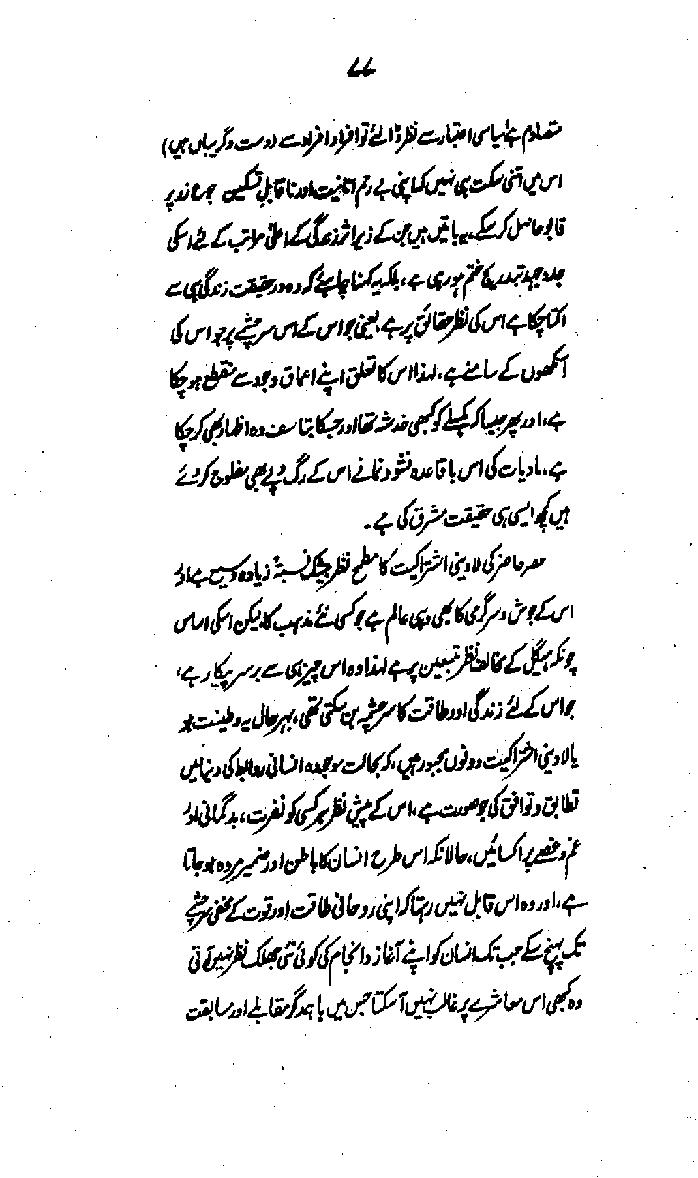 ۷۷
متصادم ہے سیاسی اعتبار سے نظر ڈالئے تو افراد افراد سے (دست و گریباں ہیں)
اس میں اتنی سکت ہی نہیں کہ اپنی بے رحم انانیت اور ناقابل تسکین جوع زر پر
قابو حاصل کر سکے۔ یہ باتیں ہیں جن کے زیر اثر زندگی کے اعلیٰ مراتب کے لئے اسکی
جدوجہد بتدریج ختم ہو رہی ہے، بلکہ یہ کہنا چاہئے کہ وہ درحقیقت زندگی ہی سے
اکتا چکا ہے اس کی نظر حقائق پر ہے۔ یعنی حواس کے اس سرچشمے پر جو اس کی
آنکھوں کے سامنے ہے، لہذا اس کا تعلق اپنے اعماق وجود سے منقطع ہو چکا
ہے، اور پھر جیسا کہ ہکسلے کو کبھی خدشہ تھا اور جس کا بتاسف وہ اظہار بھی کر چکا
ہے۔ مادیات کی اس باقاعدہ نشوونما نے اس کے رگ و پے بھی مفلوج کر دئے
ہیں کچھ ایسی ہی حقیقت مشرق کی ہے۔
عصر حاضر کی لادینی اشتراکیت کا مطمح نظر بیشک نسبتہً زیادہ وسیع ہے اور
اس کے جوش و سرگرمی کا بھی وہی عالم ہے جو کسی نئے مذہب کا، لیکن اسکی اساس
چونکہ ہیگل کے مخالف نظر متبعین پر ہے لہذا وہ اس چیز ہی سے برسر پیکار ہے،
جو اس کے لئے زندگی اور طاقت کا سرچشمہ بن سکتی تھی، بہرحال یہ وطنیت ہو
یا لادینی اشتراکیت دونوں مجبور ہیں، کہ بحالت موجودہ انسانی روابط کی دنیا میں
تطابق و توافق کی جو صورت ہے، اس کے پیش نظر ہر کسی کو نفرت، بدگمانی اور
غم و غصے پر اکسائیں، حالانکہ اس طرح انسان کا باطن اور ضمیر مردہ ہو جاتا
ہے، اور وہ اس قابل نہیں رہتا کہ اپنی روحانی طاقت اور قوت کے مخفی سرچشمے
تک پہنچ سکے جب تک انسان کو اپنے آغاز و انجام کی کوئی نئی جھلک نظر نہیں آتی
وہ کبھی اس معاشرے پر غالب نہیں آ سکتا جس میں باہمدگر مقابلے اور مسابقت